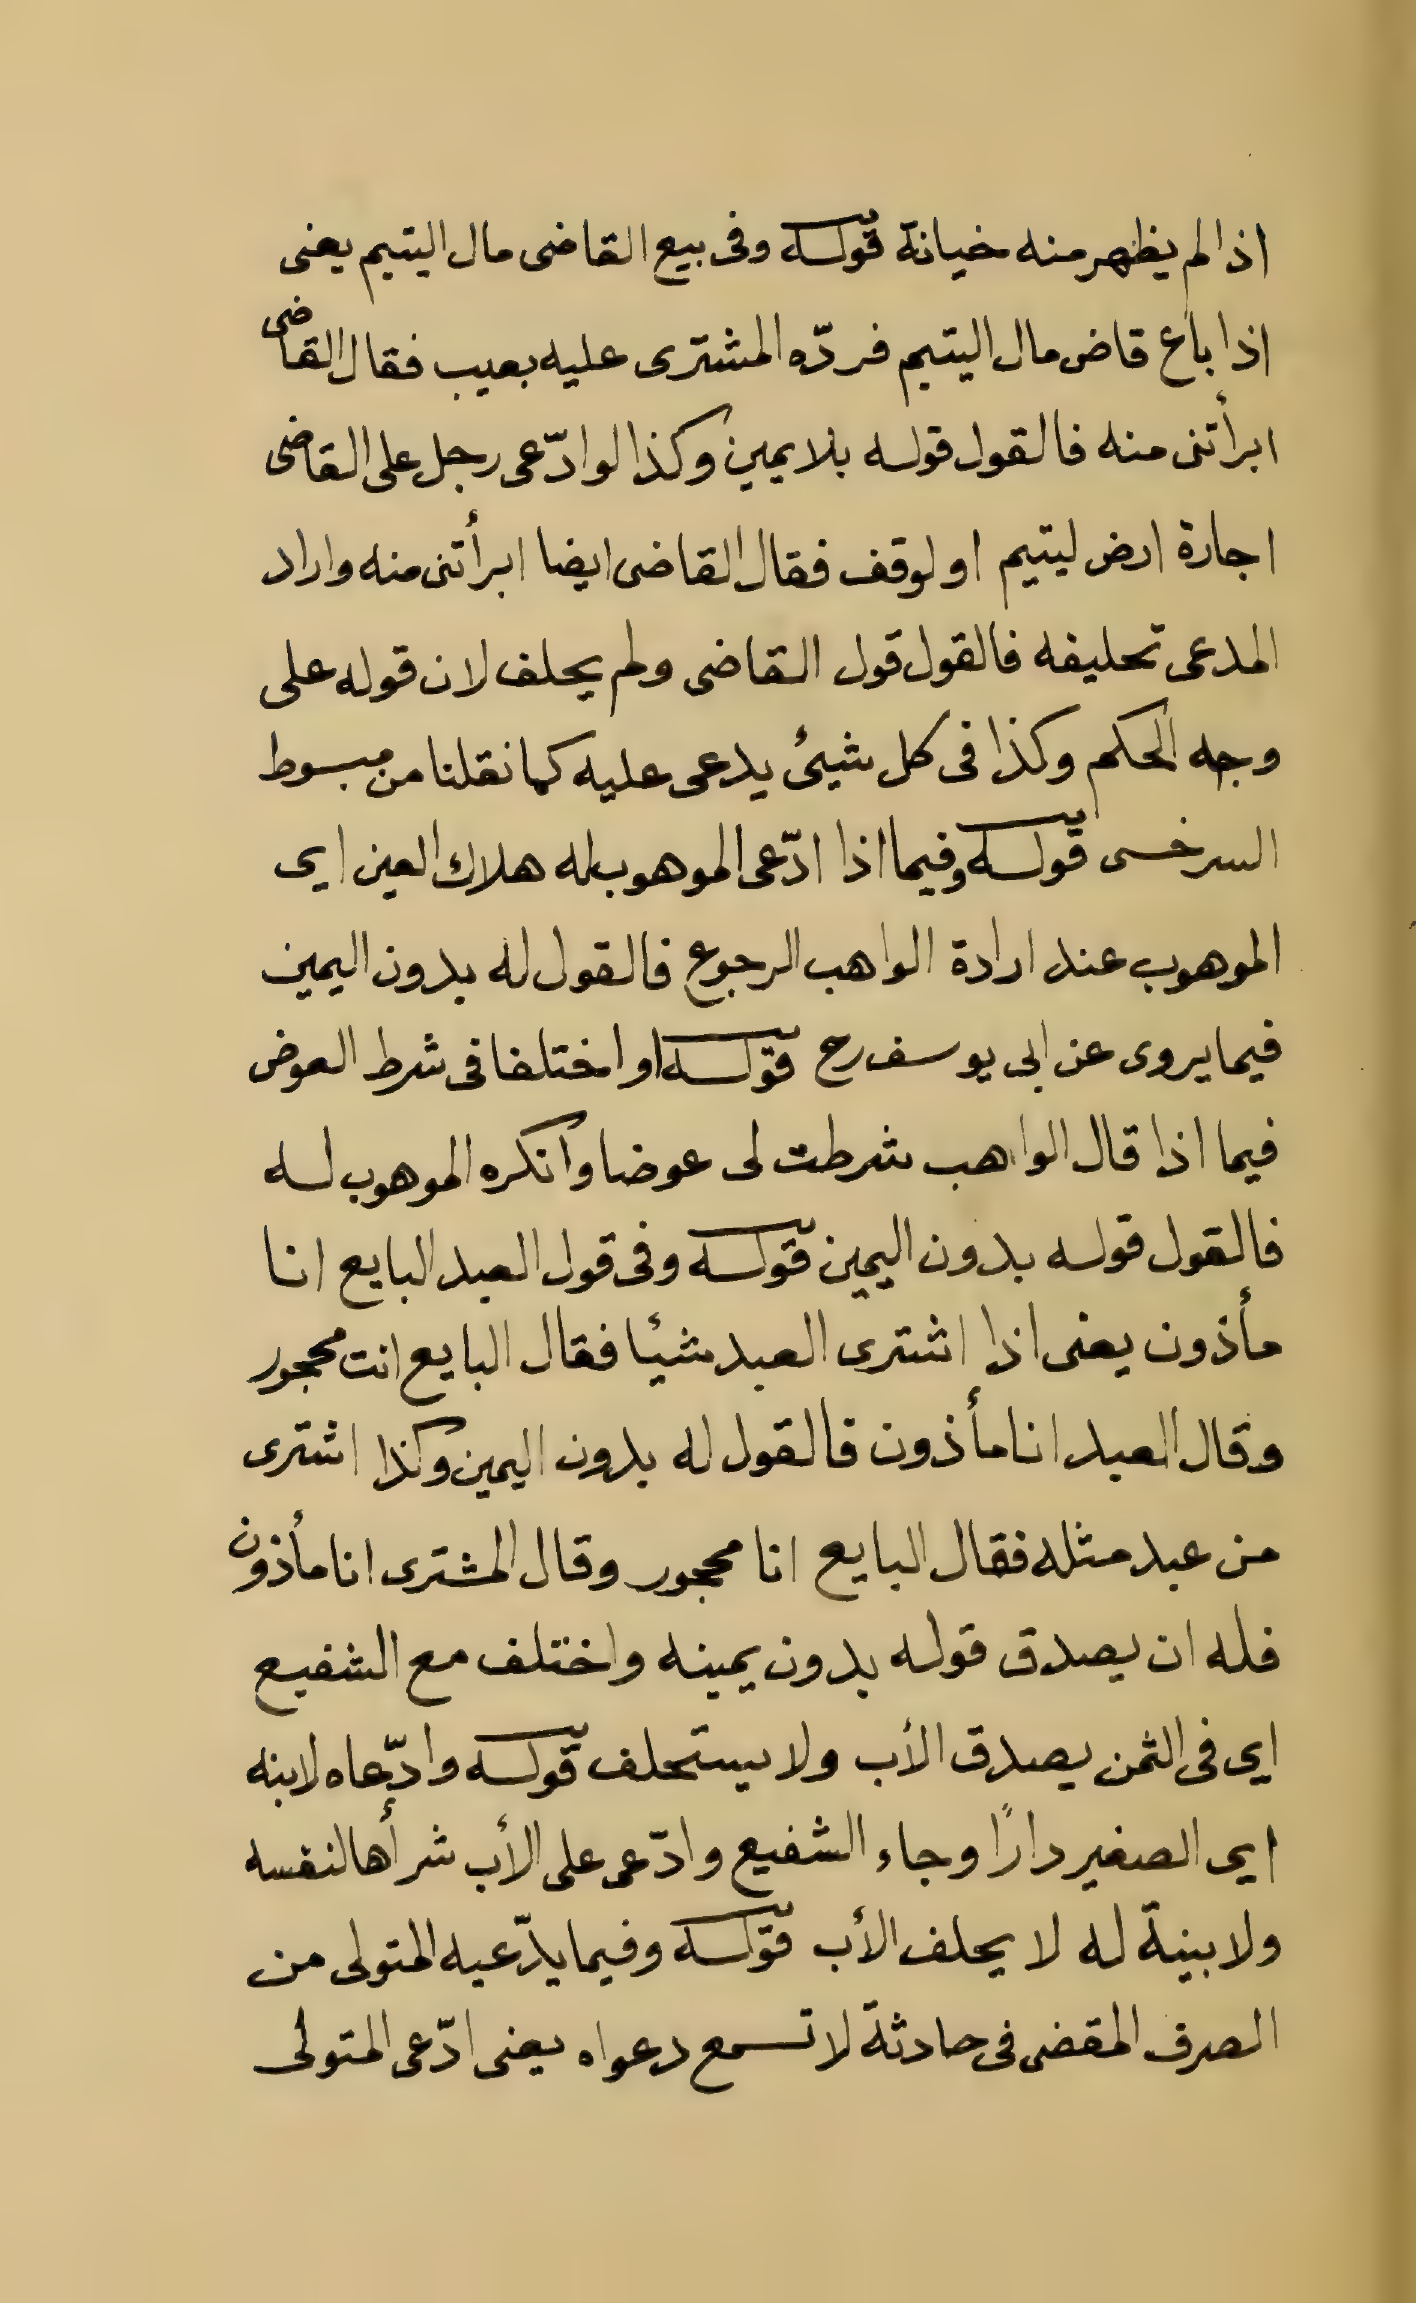 اذا لم يظهر منه خيانة قوله وفى بيع القاضى مال اليتيم يعنى
اذا باع قاض مال اليتيم فردّه المشترى عليه بعيب فقال القاضى
ابرأتنى منه فالقول قوله بلا يمين وكذا لو ادّعى رجل على القاضى
اجارة ارض ليتيم او لوقف فقال القاضى ايضا ابرأتنى منه واراد
المدعى تحليفه فالقول قول القاضى ولم يحلف لان قوله على
وجه الحكم وكذا فى كل شيئ يدعى عليه كما نقلنا من مبسوط
السرخسى قوله وفيما اذا ادّعى الموهوب له هلاك العين اى
الموهوب عند ارادة الواهب الرجوع فالقول له بدون اليمين
فيما يروى عن ابى يوسف رح قوله او اختلفا فى شرط العوض
فيما اذا قال الواهب شرطت لى عوضا وانكره الموهوب له
فالقول قوله بدون اليمين قوله وفى قول العبد البايع انا
مأذون يعنى اذا اشترى العبد شيئا فقال البايع انت محجور
وقال العبد انا مأذون فالقول له بدون اليمين وكذا اشترى
من عبد مثله فقال البايع انا محجور وقال المشترى انا مأذون
فله ان يصدق قوله بدون يمينه واختلف مع الشفيع
اى فى الثمن يصدق الأب ولا يستحلف قوله وادّعاه لابنه
اى الصغير دارًا وجاء الشفيع وادّعى على الأب شرأها لنفسه
ولا بينة له لا يحلف الأب قوله وفيما يدّعيه المتولى من
الصرف المقضى فى حادثة لا تسمع دعواه يعنى ادّعى المتولى